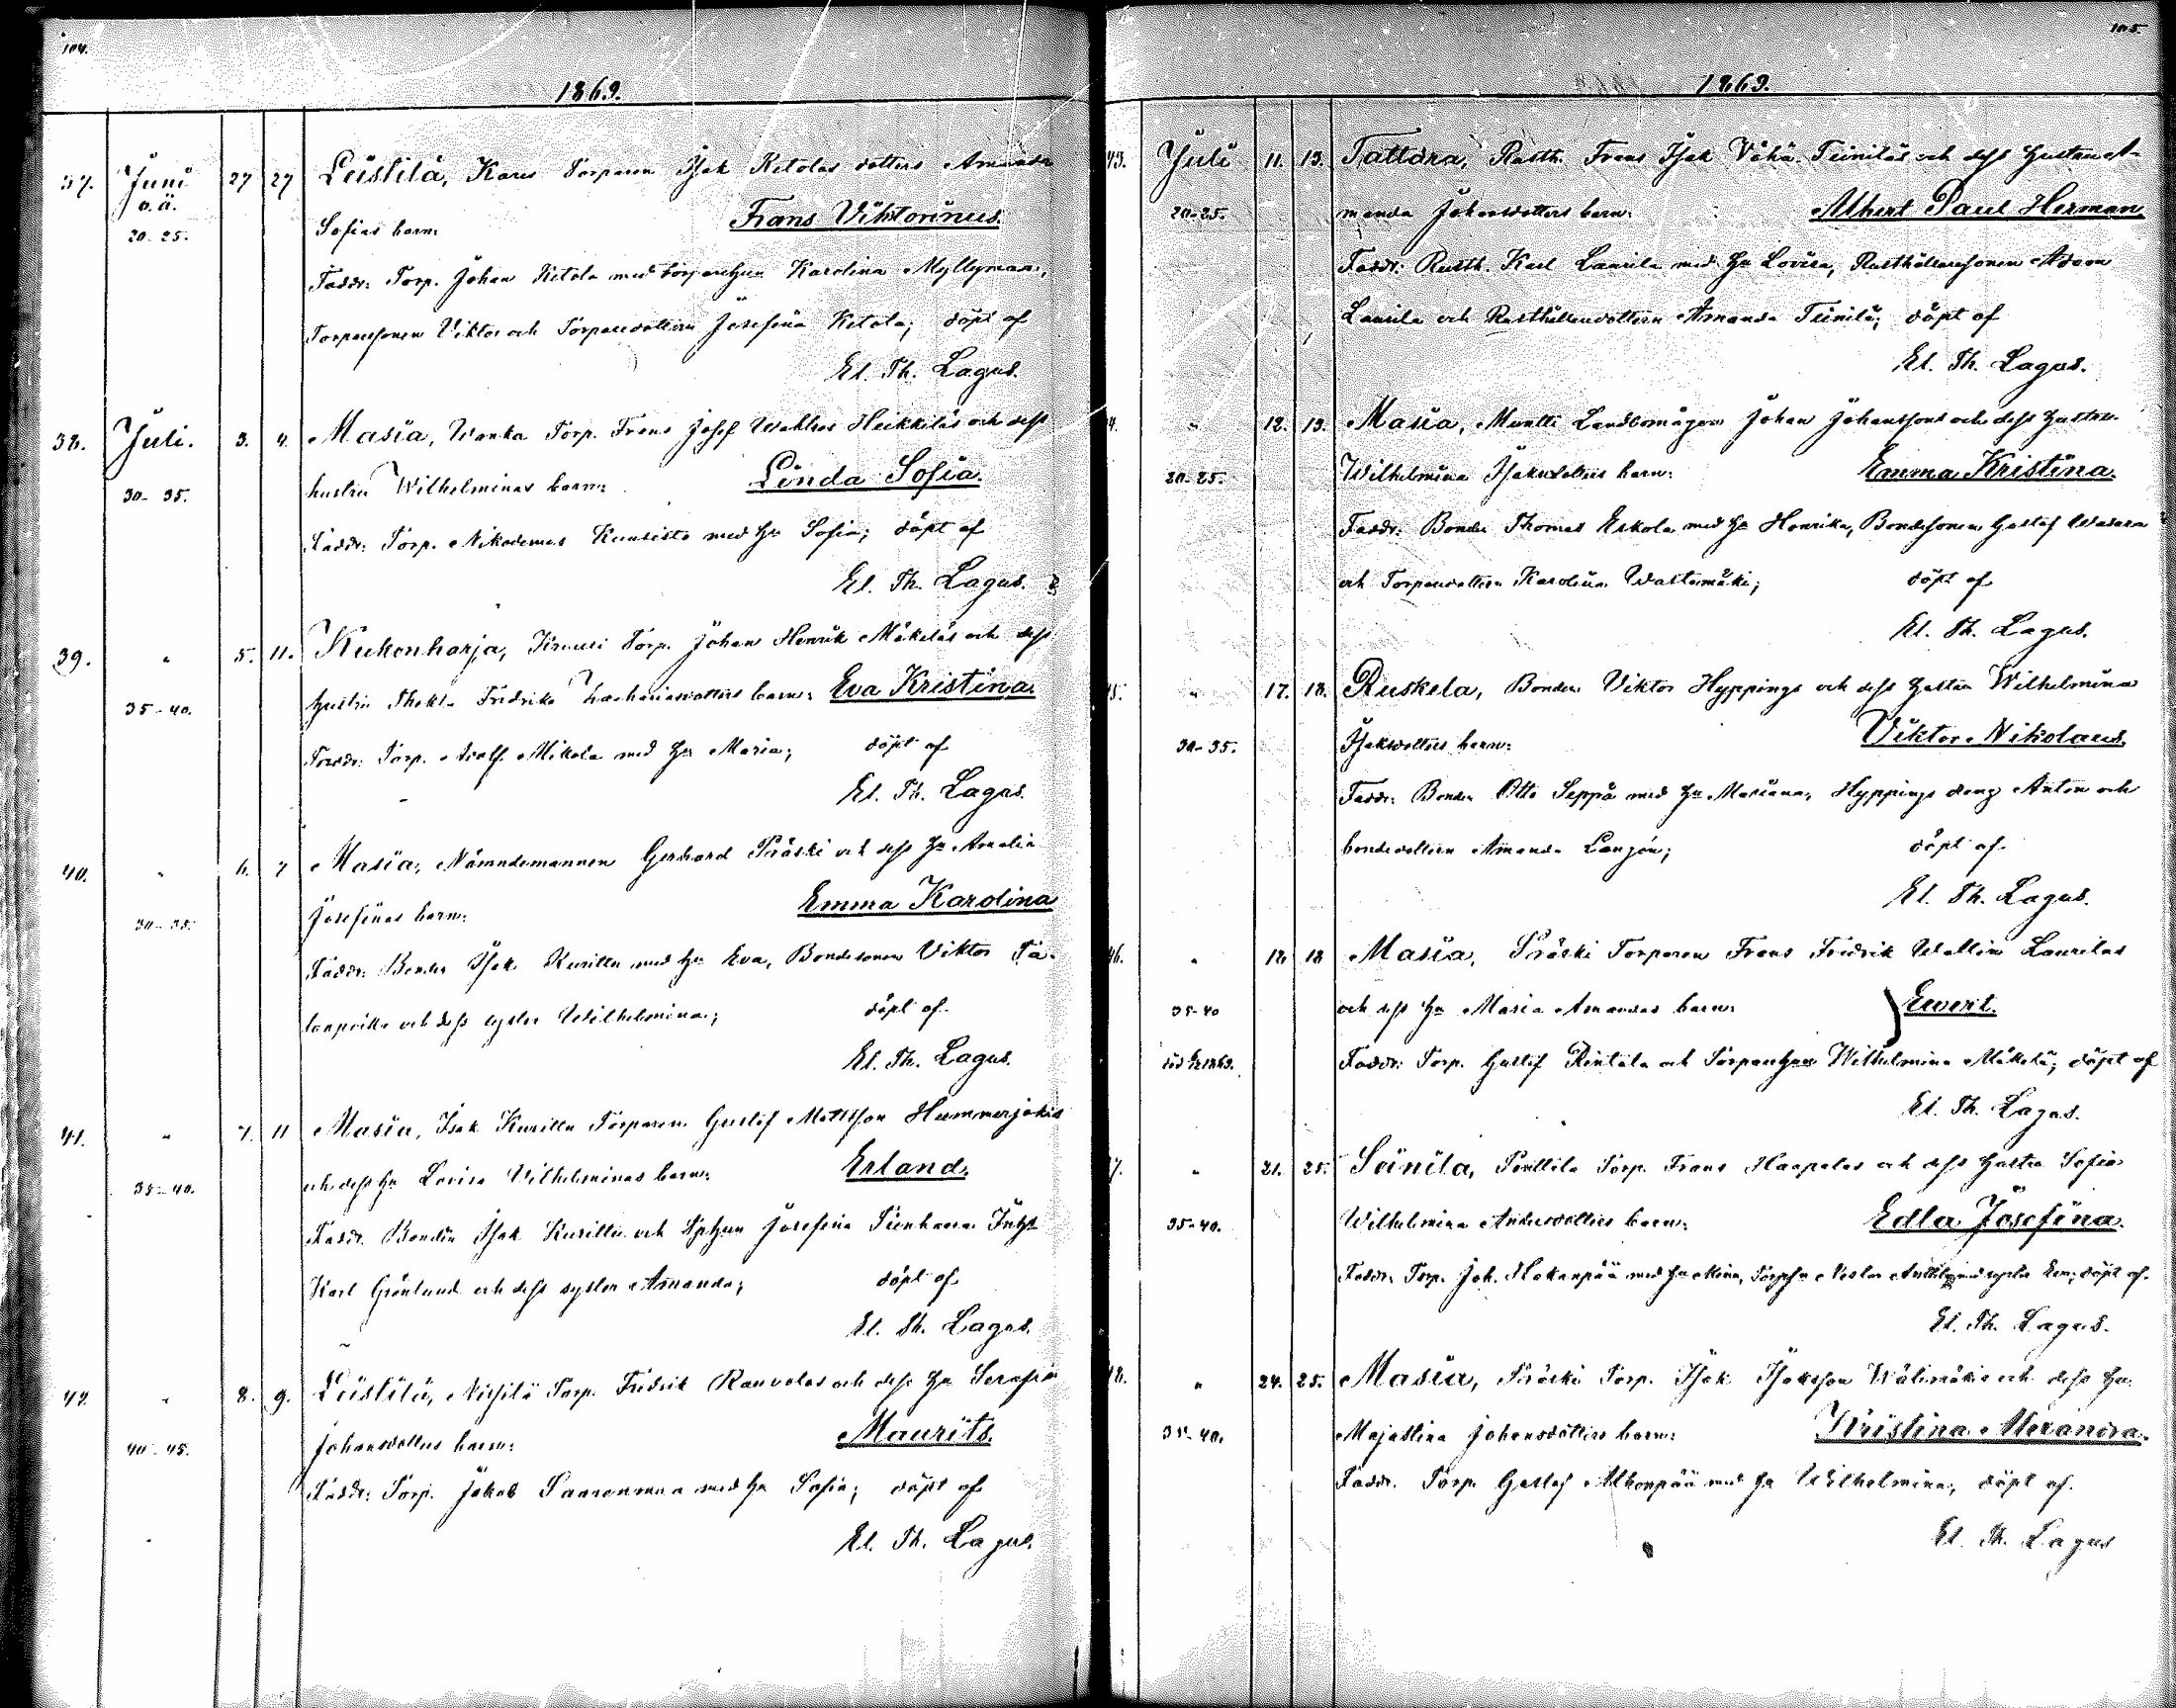 104.
1869.
37. Juni 27 27 Liistilä, Karis Torparen Isak Ketolas dotters Amanda
o.ä.
20-25. Sofias barn: Frans Viktorinus.
Faddr: Torp. Johan Ketola med torparehun Karolina Myllymaa,
Torparesonen Viktor och Torparedottern Josefina Ketola; döpt af
El. Th. Lagus.
38. Juli. 3. 4. Masia, Wanka Torp. Frans Josef Wahlros Heikkiläs och dess
30-35. hustru Wilhelminas barn: Linda Sofia.
Faddr: Torp. Nikodemus Kuusisto med hu Sofia; döpt af
El. Th. Lagus.
39. " 5. 11. Kukonharja, Torp. Johan Henrik Mäkeläs och dess
35-40. hustru Thekla Fredrika Zachariasdotters barn: Eva Kristina.
Faddr: Torp. Adolf Mikola med hu Maria; döpt af
El. Th. Lagus.
40. " 6. 7 Masia, Nämndemannen Gerhard Präski och dess hu Amalia
30-35. Josefinas barn: Emma Karolina
Faddr: Bonden Isak Kurilla med hu Eva, Bondesonen Viktor
och dess syster Wilhelmina; döpt af
El. Th. Lagus.
41. " 7. 11 Masia, Isak Kurilla Torparen Gustaf Mattsson Hummerjokis
35-40. och dess hu Lovisa Vilhelminas barn: Erland.
Faddr. Bonden Isak Kurilla och Josefina
Karl Grönlund och dess syster Amanda; döpt af
El. Th. Lagus.
42. " 8. 9. Liistilä, Torp. Fredrik Rauvolas och dess hu Serafia
40-45. Johansdotters barn: Maurits.
Faddr: Torp. Jakob Saarenmaa med hu Sofia; döpt af
El. Th. Lagus.
105.
1869.
43. Juli 11. 13. Tattara, Rusth. Frans Isak Vähä-Teiniläs och dess hustru A-
20-25. manda Johansdotters barn: Albert Paul Herman
Faddr: Rusth. Karl Laurila med hu Lovisa, Rusthållaresonen Adam
Laurila och Rusthållaredottern Amanda Teinilä; döpt af
El. Th. Lagus.
4. " 12. 13. Masia, Landbomågen Johan Johanssons och dess hustru
20-25. Wilhelmina Isaksdotters barn: Emma Kristina.
Faddr: Bonden Thomas Eskola med hu Henrika, Bondesonen Gustaf
och Torparedottern Karolina Wastamäki; döpt af
El. Th. Lagus.
45. " 17. 18. Ruskela, Bonden Viktor Hyppings och dess hustru Wilhelmina
30-35. Isaksdotters barn: Viktor Nikolaus.
Faddr: Bonden Otto Seppä med hu Mariana, Hyppings dreng Anton och
bondedottern Amanda Lanzén; döpt af
El. Th. Lagus.
46. " 18 18 Masia, Präski Torparen Frans Fredrik Wallin Laurilas
35-40 och dess hu Maria Amandas barn: Ewert.
Faddr: Torp. Gustaf Rintala och Torparehun Wilhelmina Mäkelä; döpt af
El. Th. Lagus.
47. " 21. 25. Seinilä, Penttilä Torp. Frans Haapalas och dess hustru Sofia
35-40. Wilhelmina Andersdotters barn: Edla Josefina.
Faddr: Torp. Joh. Hakanpää med hu Mina, Nestor Anttila med syster Eva; döpt af
El. Th. Lagus.
48. " 24. 25. Masia, Präski Torp. Isak Isaksson Wälimäkis och dess hu
35-40. Majastina Johansdotters barn: Kristina Alexandra.
Faddr. Torp. Gustaf Alhonpää med hu Wilhelmina; döpt af
El. Th. Lagus